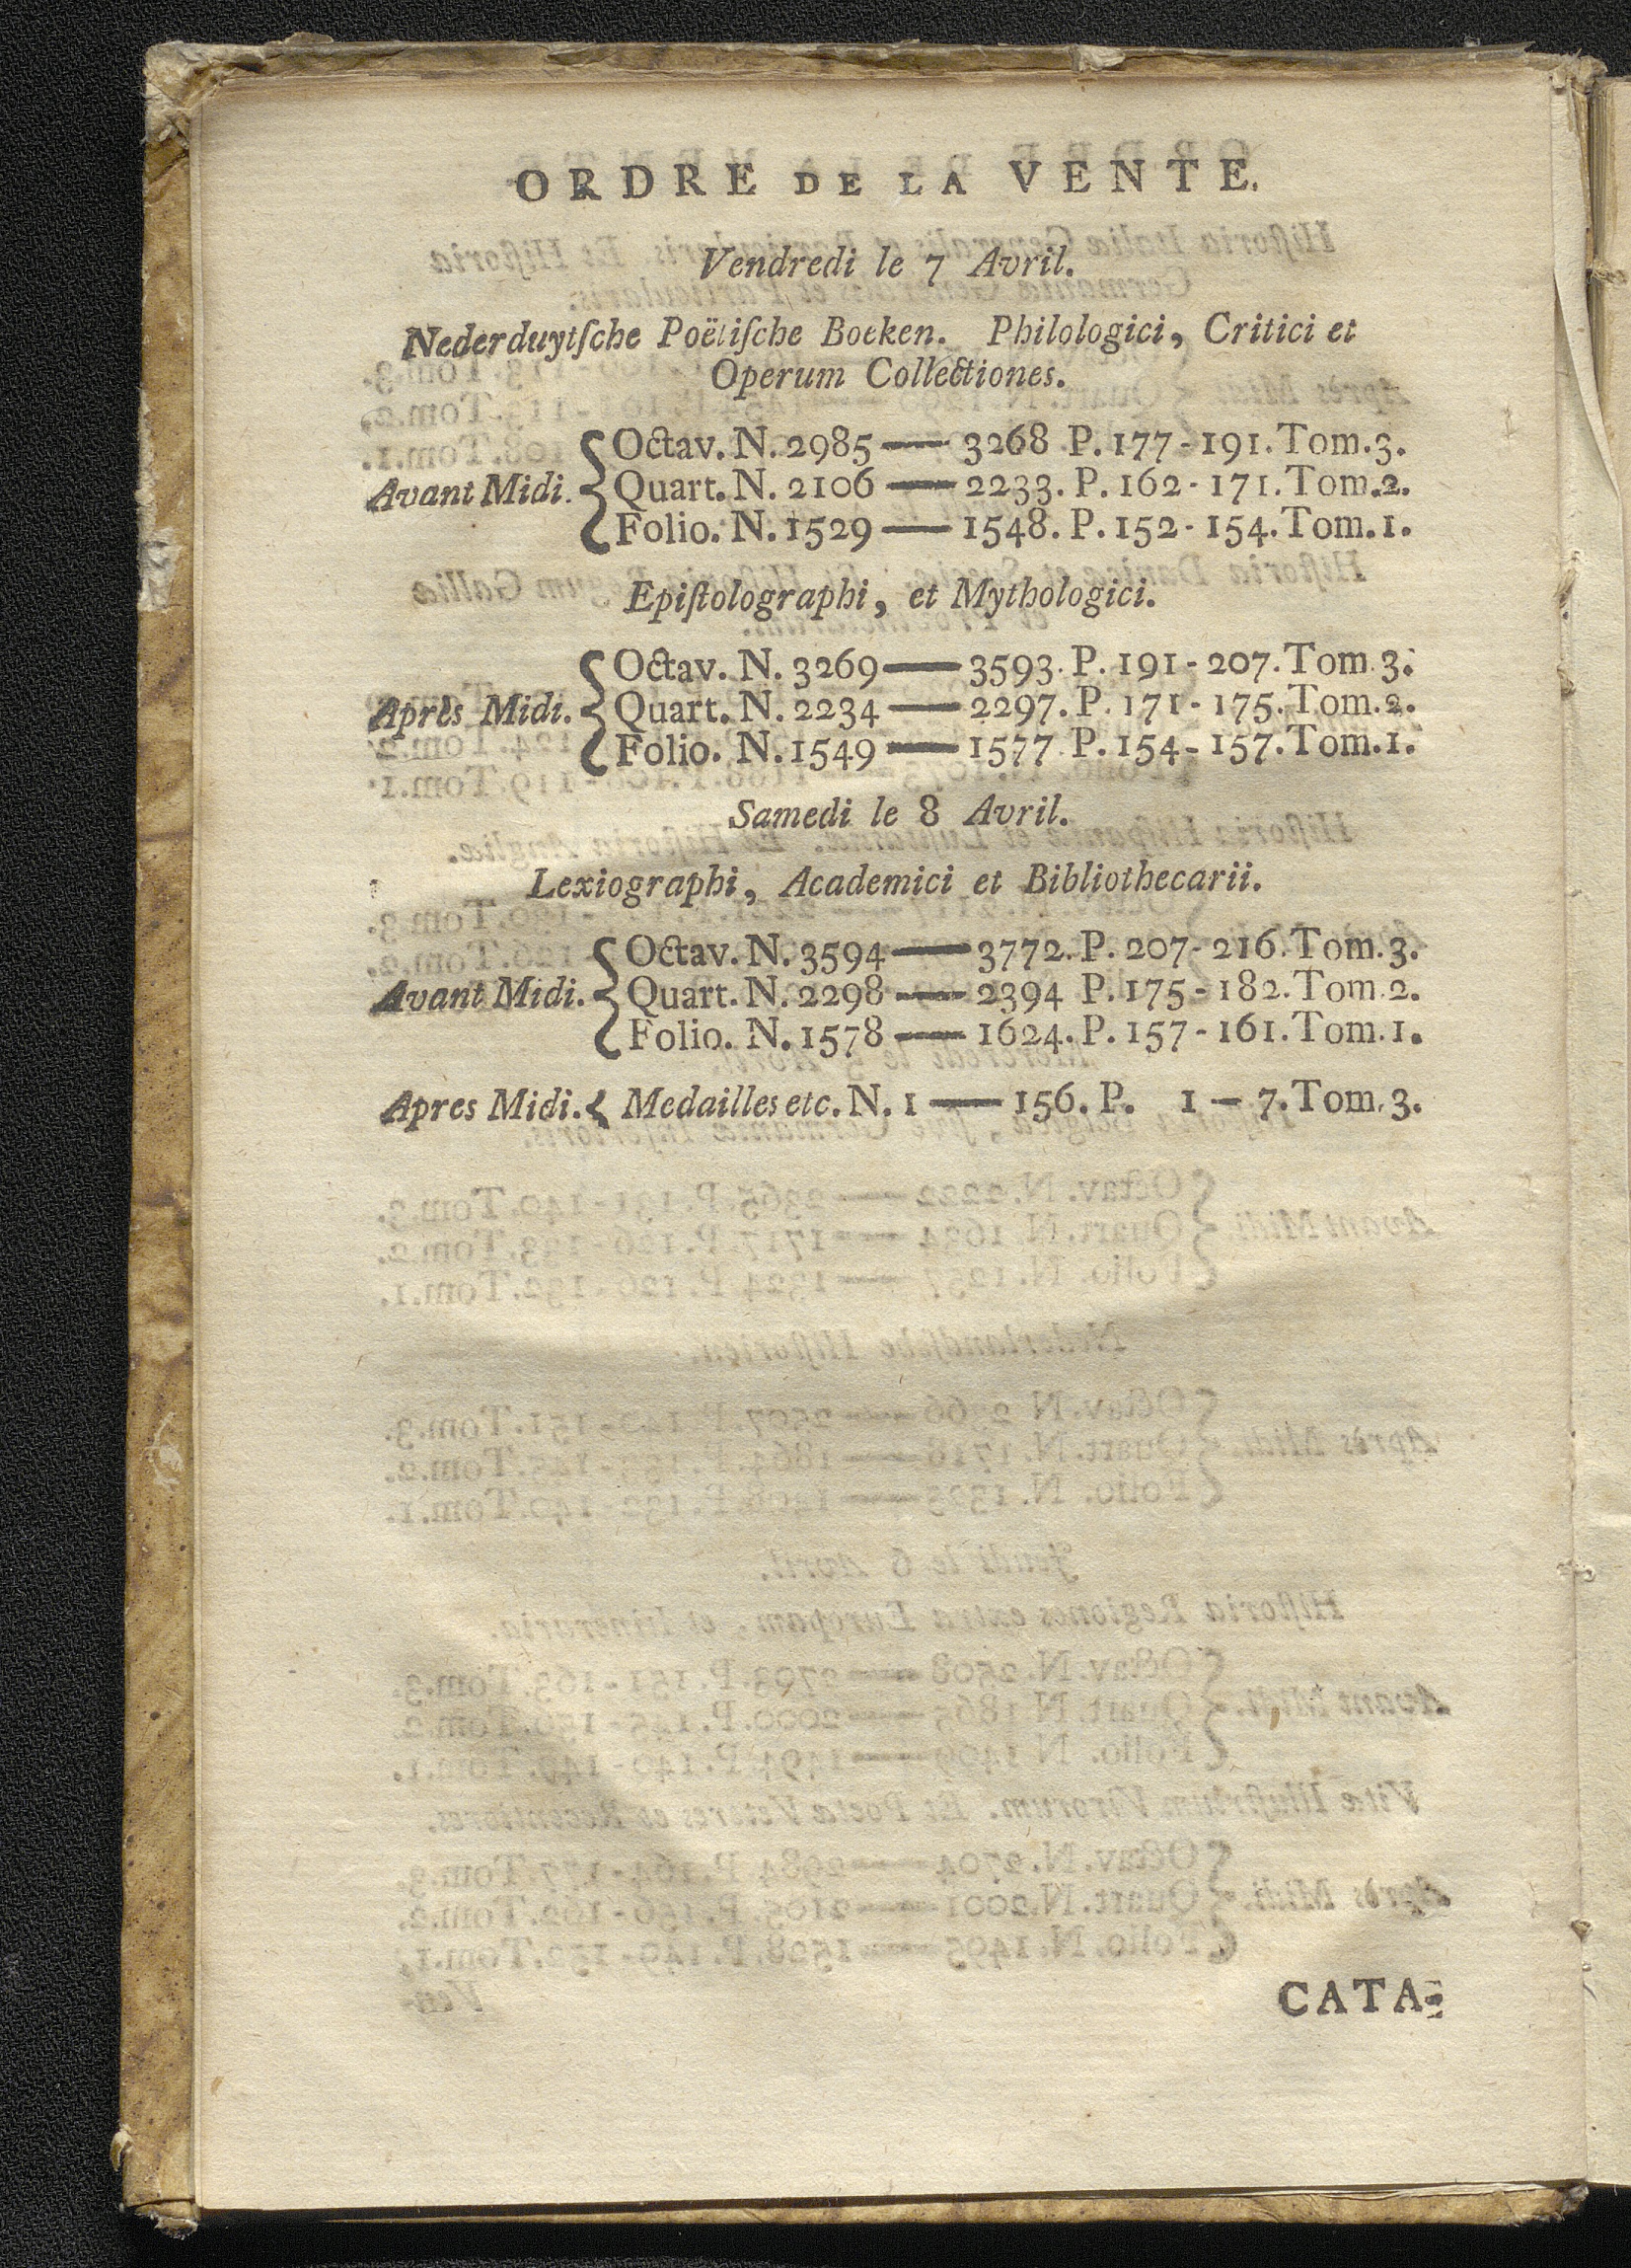 ORDRE DE LA VENTE.
Vendredi le 7 Avril.
Nederduytſche Poëtiſche Boeken. Philologici, Critici et
Operum Collectiones.
Octav. N. 2985 — 3268 P. 177-191. Tom. 3.
Avant Midi. Quart. N. 2106 — 2233. P. 162-171. Tom. 2.
Folio. N. 1529 — 1548. P. 152-154. Tom. 1.
Epiſtolographi, et Mythologici.
Octav. N. 3269 — 3593. P. 191-207. Tom. 3.
Après Midi. Quart. N. 2234 — 2297. P. 171-175. Tom. 2.
Folio. N. 1549 — 1577 P. 154-157. Tom. 1.
Samedi le 8 Avril.
Lexiographi, Academici et Bibliothecarii.
Octav. N. 3594 — 3772. P. 207-216. Tom. 3.
Avant Midi. Quart. N. 2298 — 2394 P. 175-182. Tom. 2.
Folio. N. 1578 — 1624. P. 157-161. Tom. 1.
Apres Midi. Medailles etc. N. 1 — 156. P. 1 — 7. Tom. 3.
CATA-